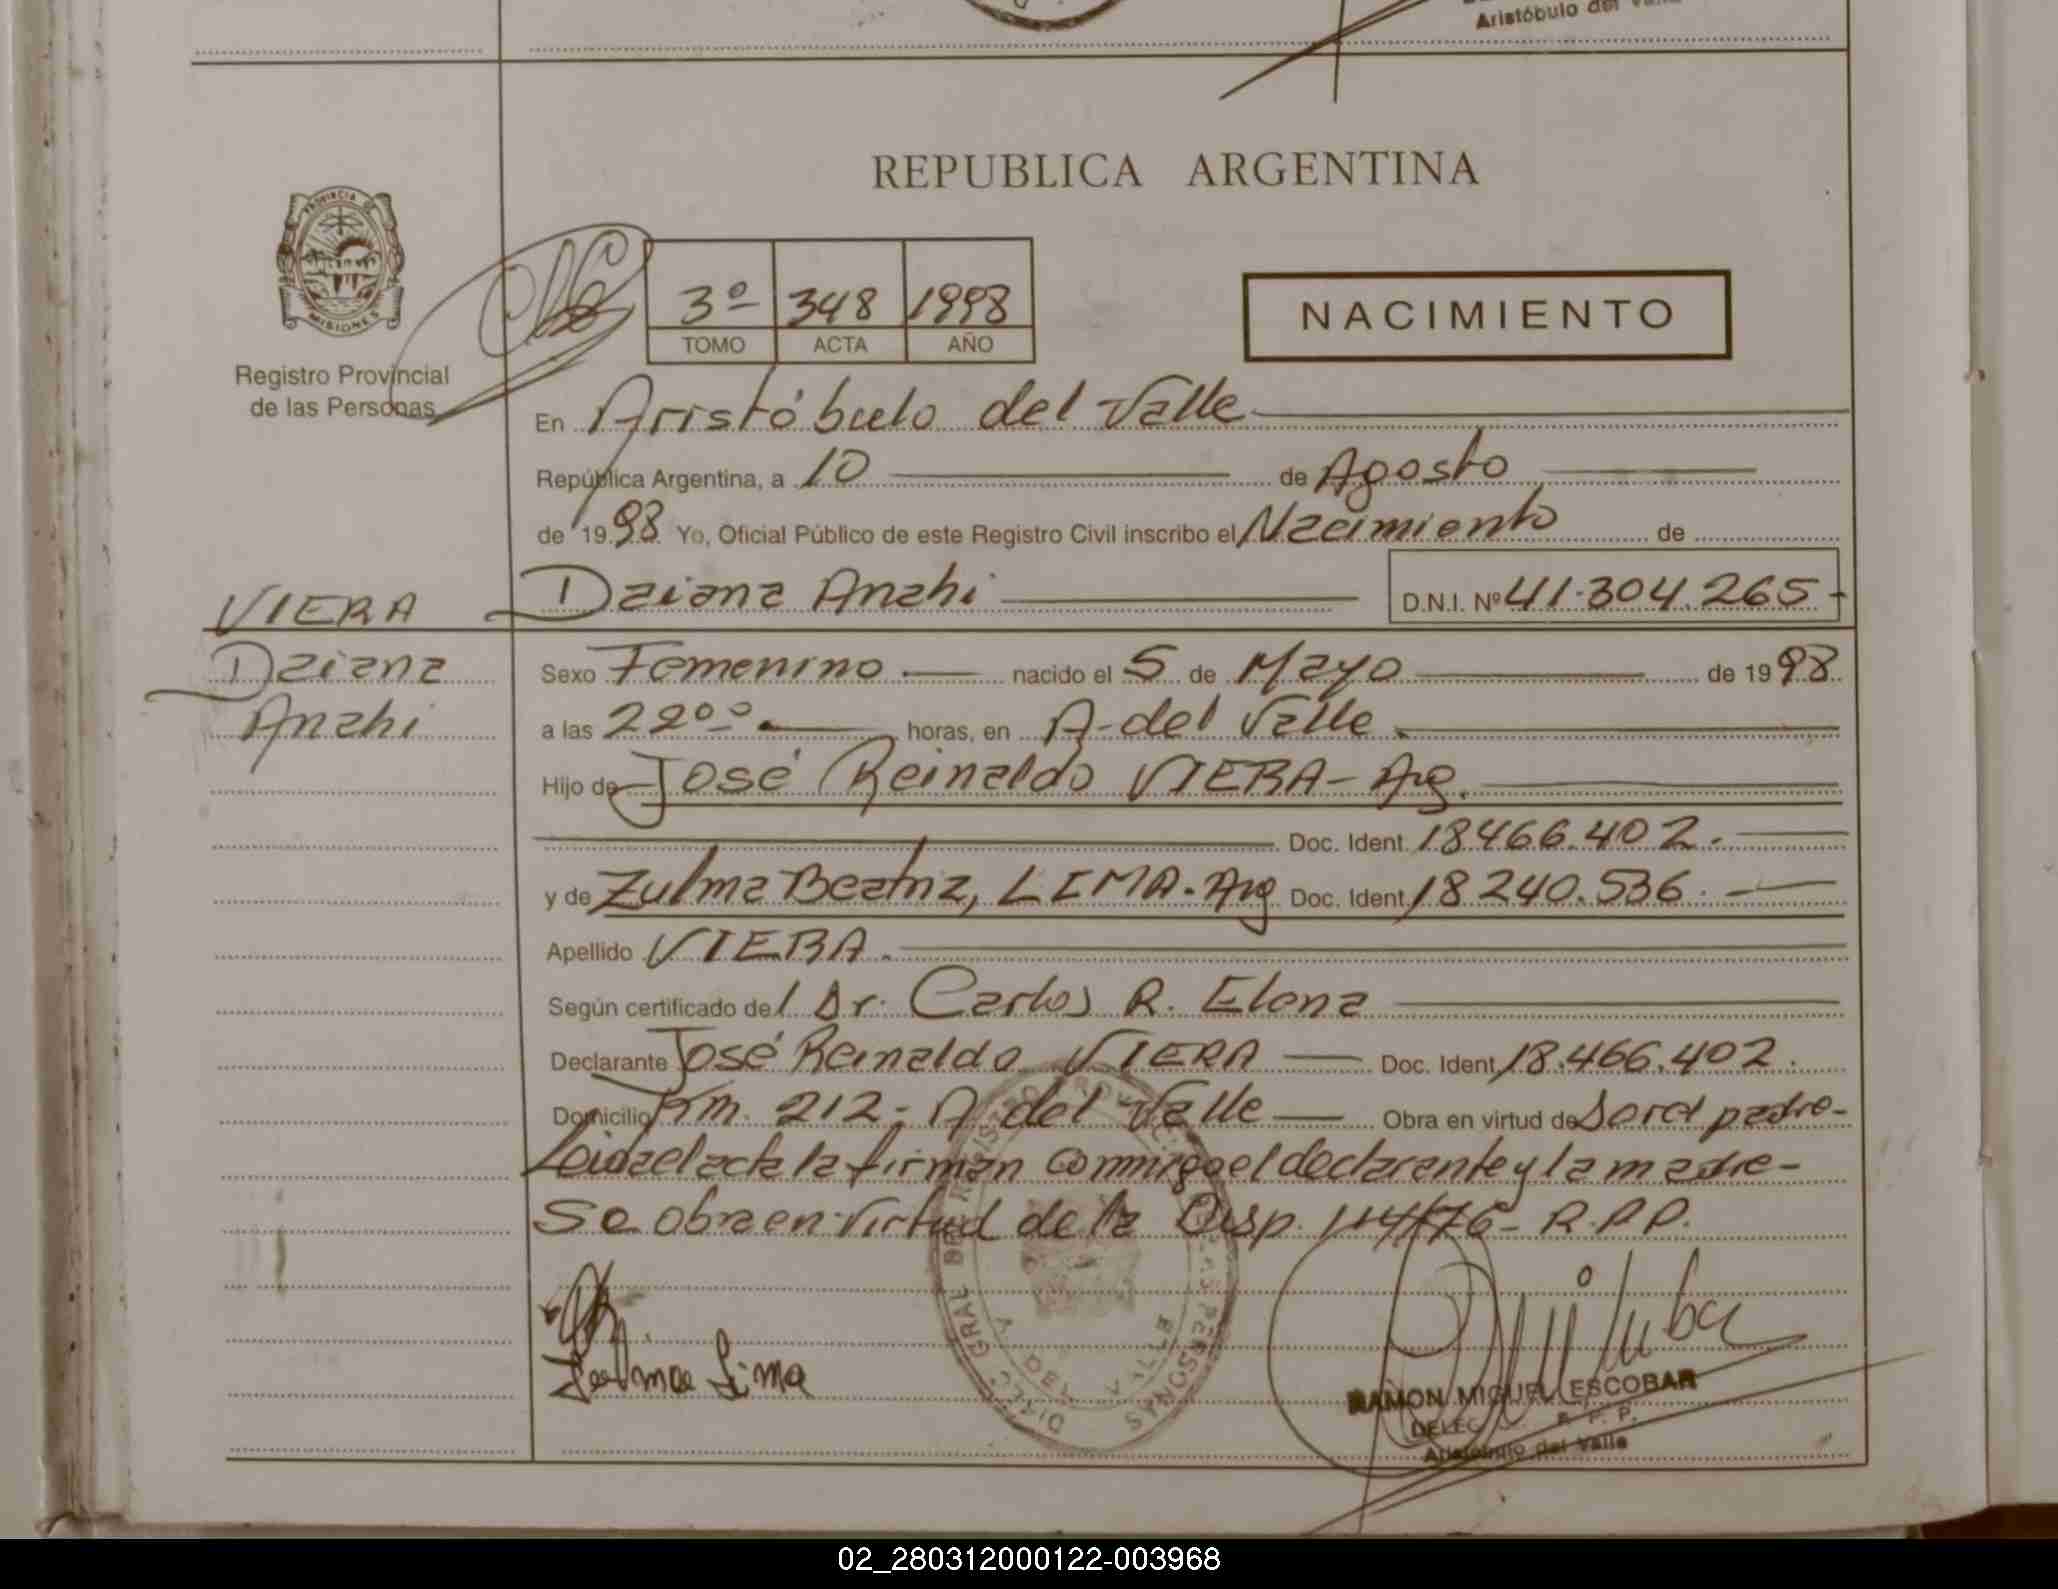 Aristóbulo del Valle
REPUBLICA ARGENTINA
PROVINCIA DE
MISIONES
Registro Provincial
de las Personas
3º 348 1998
TOMO ACTA AÑO
NACIMIENTO
En Aristóbulo del Valle
República Argentina, a 10 de Agosto
de 1998 Yo, Oficial Público de este Registro Civil inscribo el Nacimiento de
VIERA Daiana Anahi D.N.I. Nº 41.304.265-
Daiana Sexo Femenino nacido el 5 de Mayo de 1998
Anahi a las 22ºº horas, en A. del Valle
Hijo de José Reinaldo VIERA- Arg.
Doc. Ident. 18.466.402.
y de Zulma Beatriz, LIMA. Arg Doc. Ident. 18.240.536.
Apellido VIERA.
Según certificado del Dr. Carlos R. Elena
Declarante José Reinaldo VIERA Doc. Ident. 18.466.402.
Domicilio Km. 212- A del Valle Obra en virtud de Ser el padre-
Leida el acta la firman conmigo el declarante y la madre-
Se obra en virtud de la Disp. 114/76- R.P.P.
Zulma Lima
RAMON MIGUEL ESCOBAR
R. P. P.
Aristóbulo del Valle
02_280312000122-003968